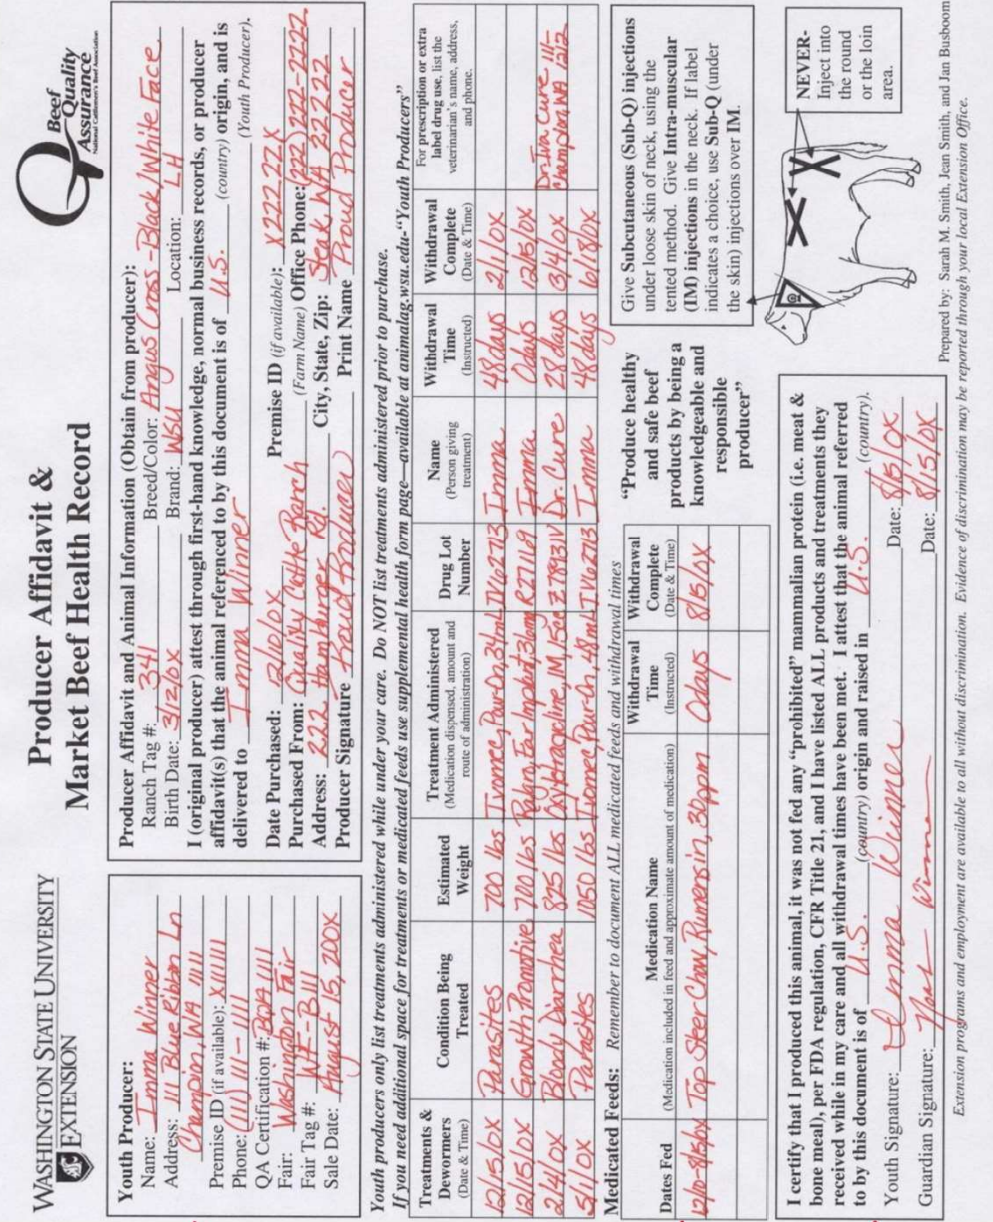 WASHINGTON STATE UNIVERSITY
EXTENSION
Producer Affidavit &
Market Beef Health Record
Beef
Quality
Assurance
National Cattlemen's Beef Association
Youth Producer:
Name: Imma Winner
Address: 111 Blue Ribbon Ln
Champion, WA 1111
Premise ID (if available): X111111
Phone: (111) 111-1111
QA Certification #: BQA 1111
Fair: Washington Fair
Fair Tag #: WF-B111
Sale Date: August 15, 200X
Producer Affidavit and Animal Information (Obtain from producer):
Ranch Tag #: 341 Breed/Color: Angus Cross-Black/White Face
Birth Date: 3/12/0X Brand: WSU Location: LH
I (original producer) attest through first-hand knowledge, normal business records, or producer
affidavit(s) that the animal referenced to by this document is of U.S. (country) origin, and is
delivered to Imma Winner (Youth Producer).
Date Purchased: 12/10/0X Premise ID (if available): X22222X
Purchased From: Quality Cattle Ranch (Farm Name) Office Phone: (222) 222-2222
Address: 222 Hamburger Rd. City, State, Zip: Steak, WA 22222
Producer Signature Proud Producer Print Name Proud Producer
Youth producers only list treatments administered while under your care. Do NOT list treatments administered prior to purchase.
If you need additional space for treatments or medicated feeds use supplemental health form page—available at animalag.wsu.edu-"Youth Producers"
Treatments & Dewormers (Date & Time) Condition Being Treated Estimated Weight Treatment Administered (Medication dispensed, amount and route of administration) Drug Lot Number Name (Person giving treatment) Withdrawal Time (Instructed) Withdrawal Complete (Date & Time) For prescription or extra label drug use, list the veterinarian's name, address, and phone.
12/15/0X Parasites 700 lbs Ivomec, Pour-On, 31ml TV62713 Imma 48days 2/1/0X
12/15/0X Growth Promotive 700 lbs Ralgro, Ear Implant, 36mg R27119 Imma 0days 12/15/0X
2/4/0X Bloody Diarrhea 825 lbs Oxytetracycline, IM, 15cc Dr. Cure 28days 3/4/0X Dr. Iwa Cure 111-
Champion WA 1212
5/1/0X Parasites 1050 lbs Ivomec, Pour-On, 48ml TV62713 Imma 48days 6/18/0X
Medicated Feeds: Remember to document ALL medicated feeds and withdrawal times
Dates Fed Medication Name (Medication included in feed and approximate amount of medication) Withdrawal Time (Instructed) Withdrawal Complete (Date & Time)
12/10-8/15/0X Top Steer Chow, Rumensin, 30ppm 0days 8/15/0X
"Produce healthy
and safe beef
products by being a
knowledgeable and
responsible
producer"
Give Subcutaneous (Sub-Q) injections
under loose skin of neck, using the
tented method. Give Intra-muscular
(IM) injections in the neck. If label
indicates a choice, use Sub-Q (under
the skin) injections over IM.
NEVER-
Inject into
the round
or the loin
area.
I certify that I produced this animal, it was not fed any "prohibited" mammalian protein (i.e. meat &
bone meal), per FDA regulation, CFR Title 21, and I have listed ALL products and treatments they
received while in my care and all withdrawal times have been met. I attest that the animal referred
to by this document is of U.S. (country) origin and raised in U.S. (country).
Youth Signature: Imma Winner Date: 8/15/0X
Guardian Signature: Winner Date: 8/15/0X
Prepared by: Sarah M. Smith, Jean Smith, and Jan Busboom
Extension programs and employment are available to all without discrimination. Evidence of discrimination may be reported through your local Extension Office.